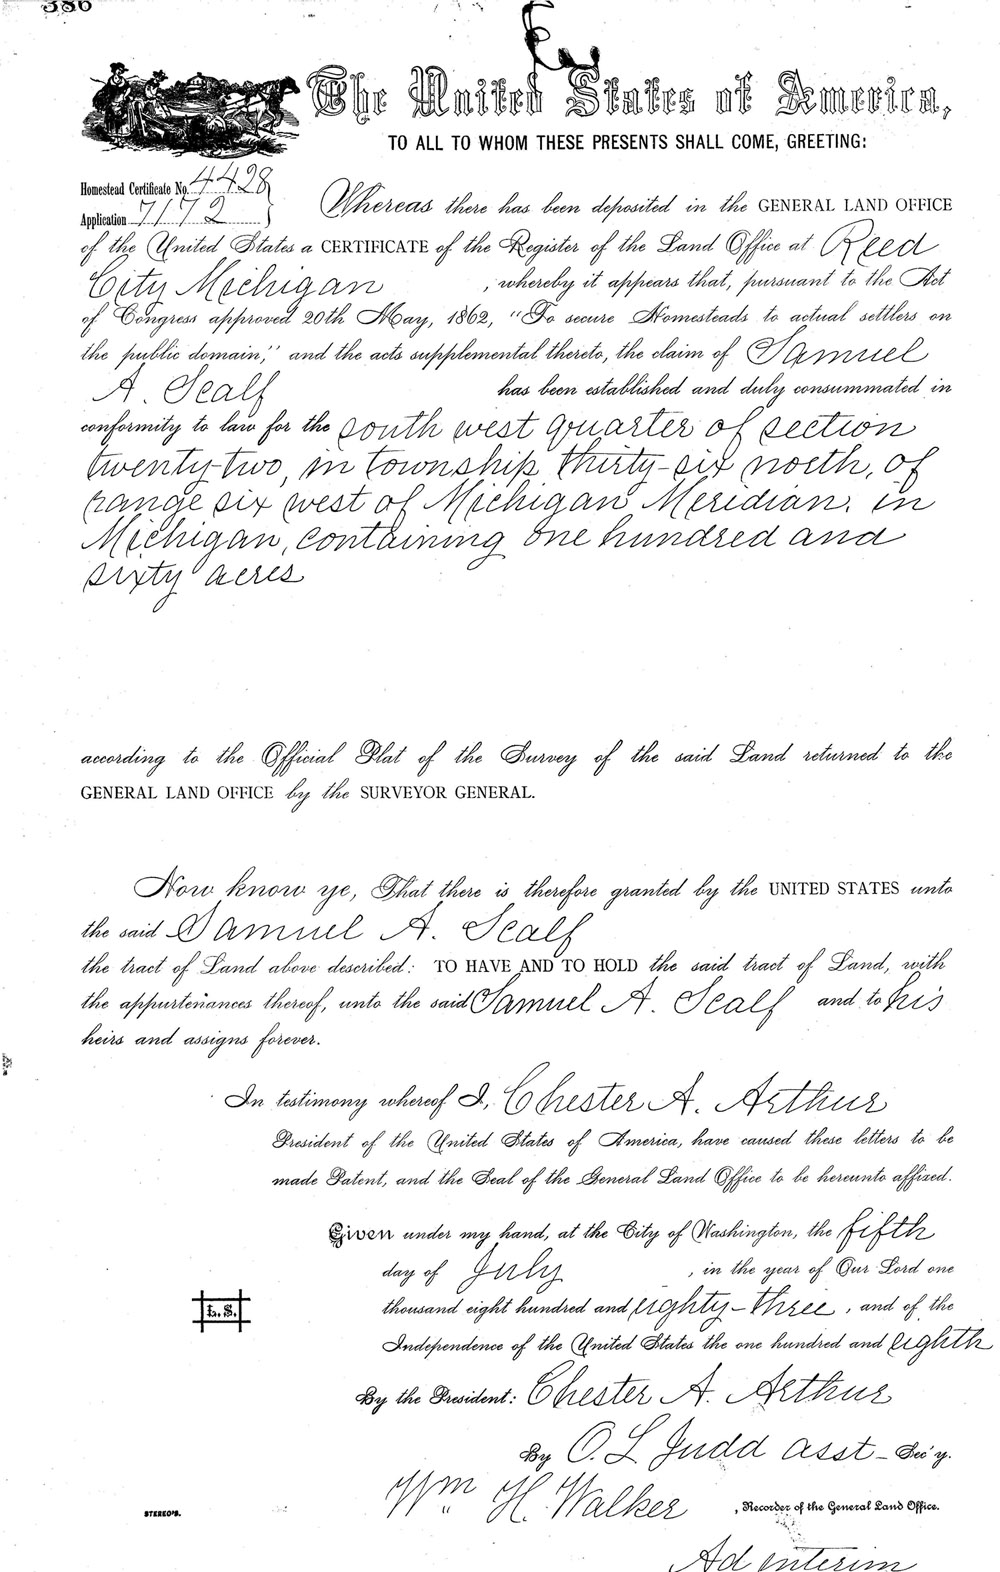 The United States of America,
TO ALL TO WHOM THESE PRESENTS SHALL COME, GREETING:
Homestead Certificate No. 4428
Application 7172
Whereas there has been deposited in the GENERAL LAND OFFICE
of the United States a CERTIFICATE of the Register of the Land Office at Reed
City Michigan , whereby it appears that, pursuant to the Act
of Congress approved 20th May, 1862, "To secure Homesteads to actual settlers on
the public domain," and the acts supplemental thereto, the claim of Samuel
A. Scalf has been established and duly consummated in
conformity to law for the south west quarter of section
twenty-two, in township thirty-six north, of
range six west of Michigan Meridian, in
Michigan, containing one hundred and
sixty acres
according to the Official Plat of the Survey of the said Land returned to the
GENERAL LAND OFFICE by the SURVEYOR GENERAL.
Now know ye, That there is therefore granted by the UNITED STATES unto
the said Samuel A. Scalf
the tract of Land above described: TO HAVE AND TO HOLD the said tract of Land, with
the appurtenances thereof, unto the said Samuel A. Scalf and to his
heirs and assigns forever.
In testimony whereof I, Chester A. Arthur
President of the United States of America, have caused these letters to be
made Patent, and the Seal of the General Land Office to be hereunto affixed.
Given under my hand, at the City of Washington, the fifth
day of July , in the year of Our Lord one
thousand eight hundred and eighty-three , and of the
Independence of the United States the one hundred and eighth
L.S.
By the President: Chester A. Arthur
By O. L Judd asst- Sec'y.
Wm H. Walker , Recorder of the General Land Office.
STEREO'S.
Ad interim